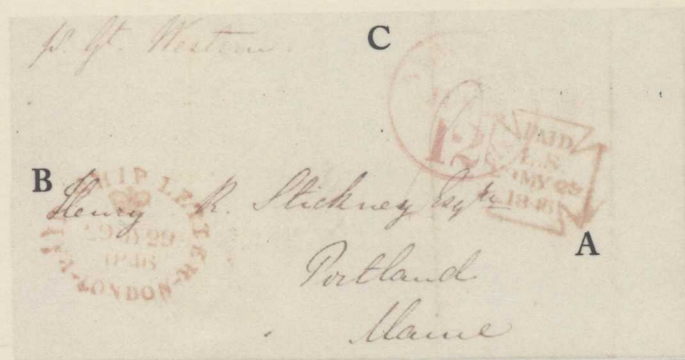 C
p. Gt. Western
12
PAID
L.S
MY 29
1846
B
SHIP LETTER
29 MY 29
1846
PAID · LONDON
Henry R. Stickney Esqre
A
Portland
Maine